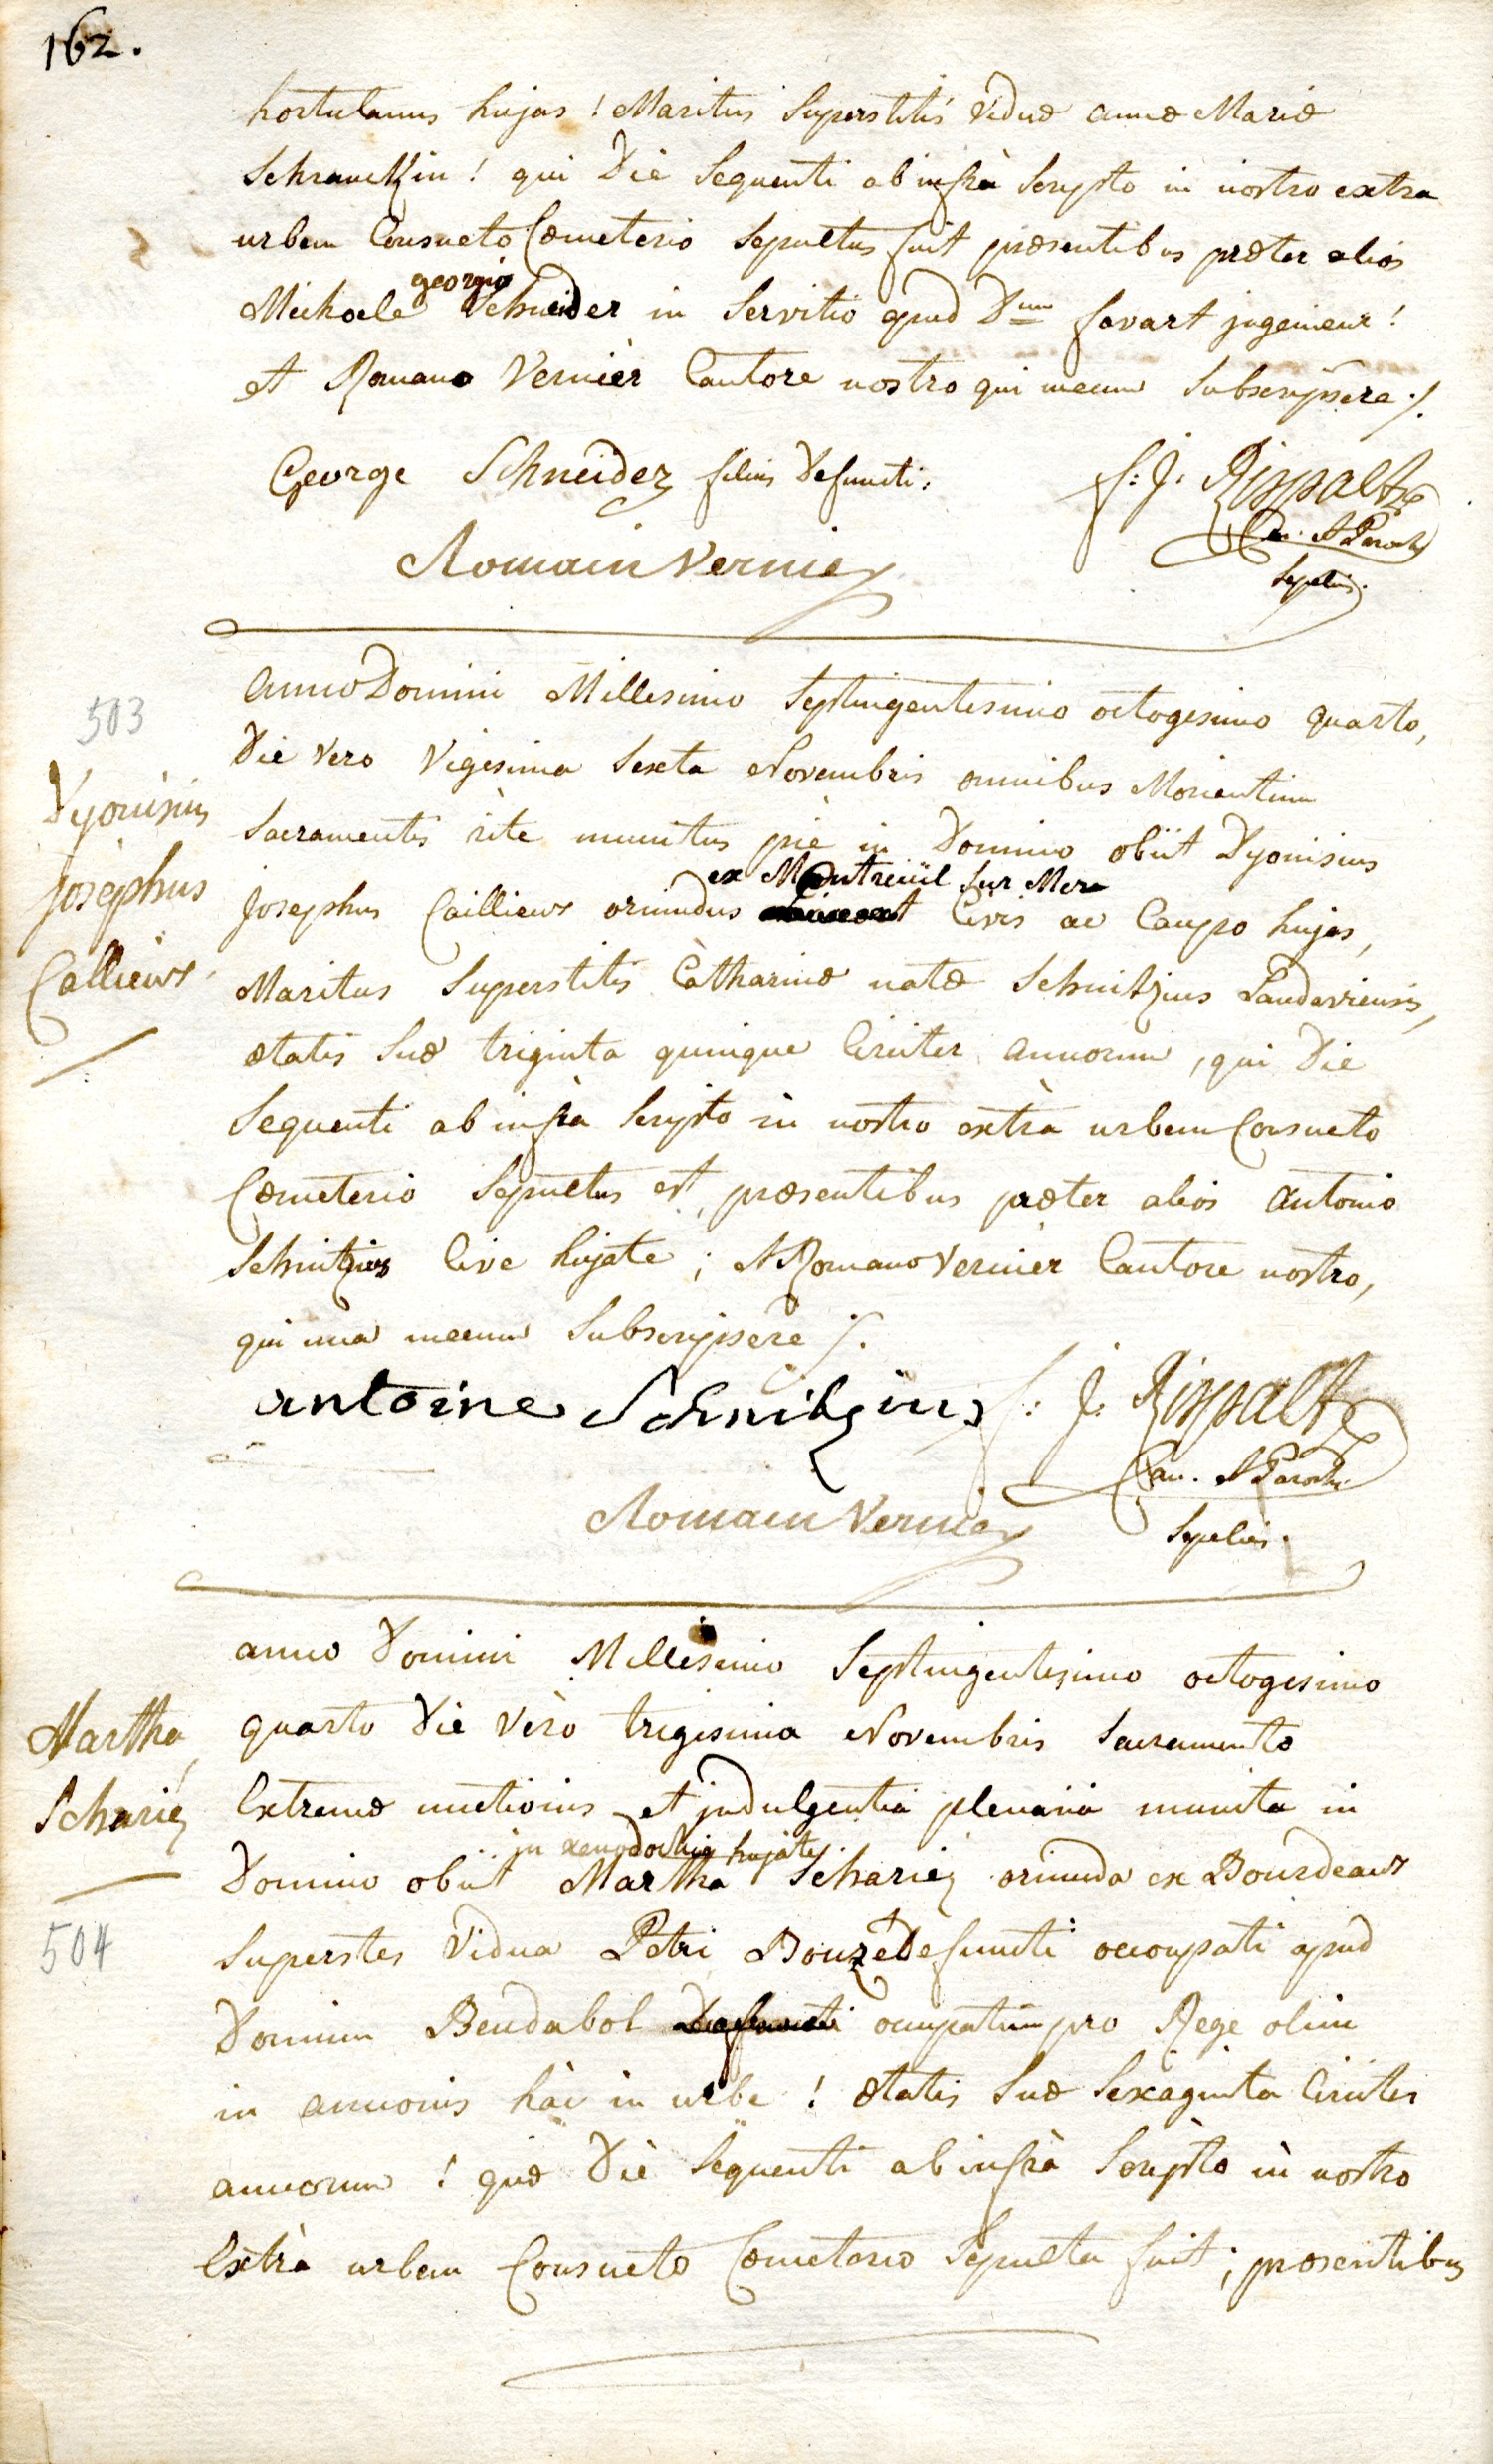 162.
hortulanus hujas ! Maritus Superstitis Viduæ annæ Mariæ
Schranckin ! qui Die Sequenti ab infrà Scripto in nostro extra
urbem Consueto Cœmeterio Sepultus fuit præsentibus præter alios
georgio
Michaele Schneider in Servitio apud Dnum favart jngenieur !
et Romano Vernièr Cantore nostro qui mecum Subscripsere ./.
George Schneider filius Defuncti.
f: J. Rispalt
Can. & Paroch
Sepelivi.
Romain Vernier
503
Dyonisius
josephus
Callieux
Anno Domini Millesimo Septingentesimo octogesimo quarto,
Die Vero Vigesima Sexta Novembris omnibus Morientium
Sacramentis rite munitus piè in Domino obiit Dyonisius
ex Montreüil Sur Mere
Josephus Caillieux oriundus Civis ac Caupo hujas,
Maritus Superstitis Càtharinæ natæ Schnitzius Landaviensis,
ætatis Suæ triginta quinque Circiter annorum, qui Die
Sequenti ab infrà Scripto in nostro extrà urbem Consueto
Cœmeterio Sepultus est, præsentibus præter alios Antonio
Schnitzius Cive hujate ; & Romano Vernièr Cantore nostro,
qui una mecum Subscripsere ./.
antoine Schnitzius
f: J. Rispalt
Can. & Paroch.
Sepelivi.
Romain Vernier
Martha
Schariez
504
anno Domini Millesimo Septingentesimo octogesimo
quarto Die Vèro trigesima Novembris Sacramento
Extremæ unctionis et jndulgentia plenaria munita in
jn xenodochio hujate
Domino obiit Martha Schariez oriunda ex Bourdeaux
Superstes Vidua Petri Bouzet Defuncti occupati apud
Dominum Bendabol occupatum pro Rege olim
in annonis hàc in urbe ! ætatis Suæ Sexaginta Circiter
annorum ! quæ Diè Sequenti ab infrà Scripto in nostro
Extrà urbem Consueto Cœmeterio Sepulta fuit ; præsentibus